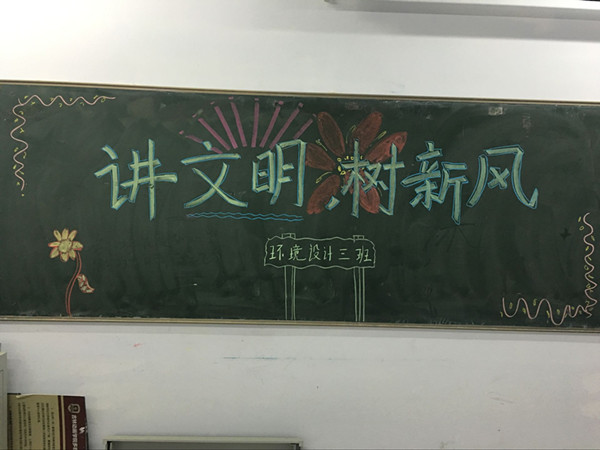 讲文明,树新风
环境设计三班